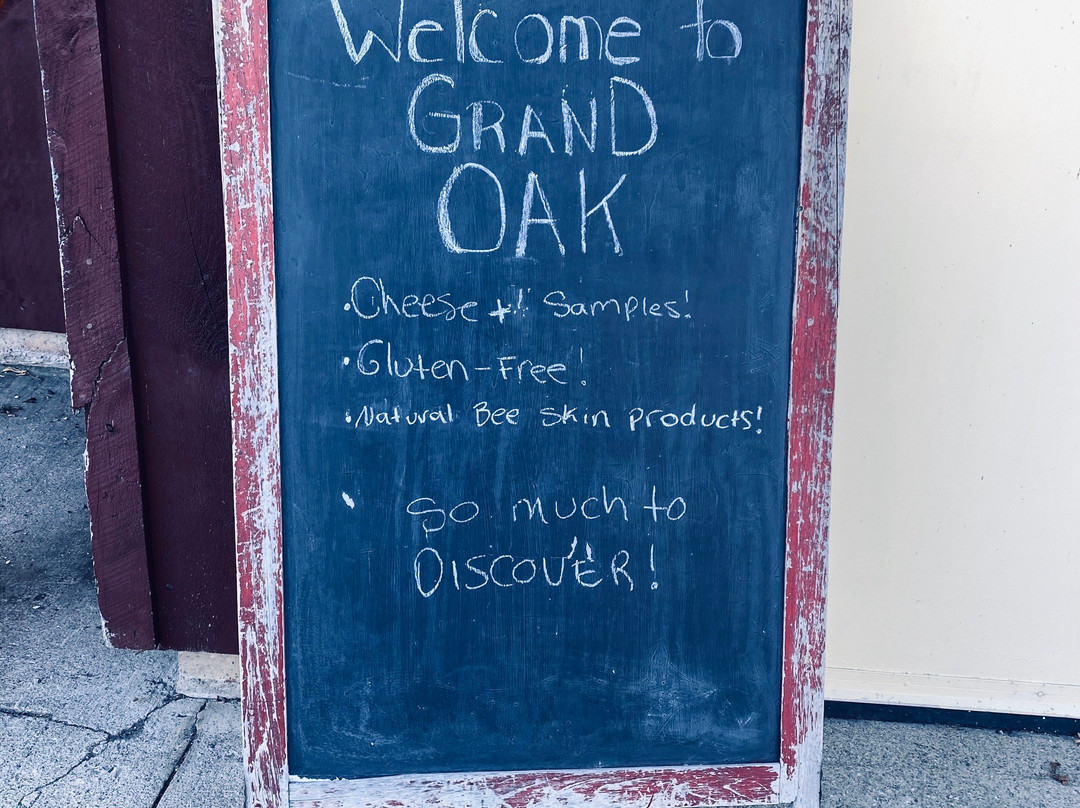 Welcome to
GRAND
OAK
• Cheese +! Samples!
• Gluten-Free!
• Natural Bee Skin products!
• So much to
DISCOVER!